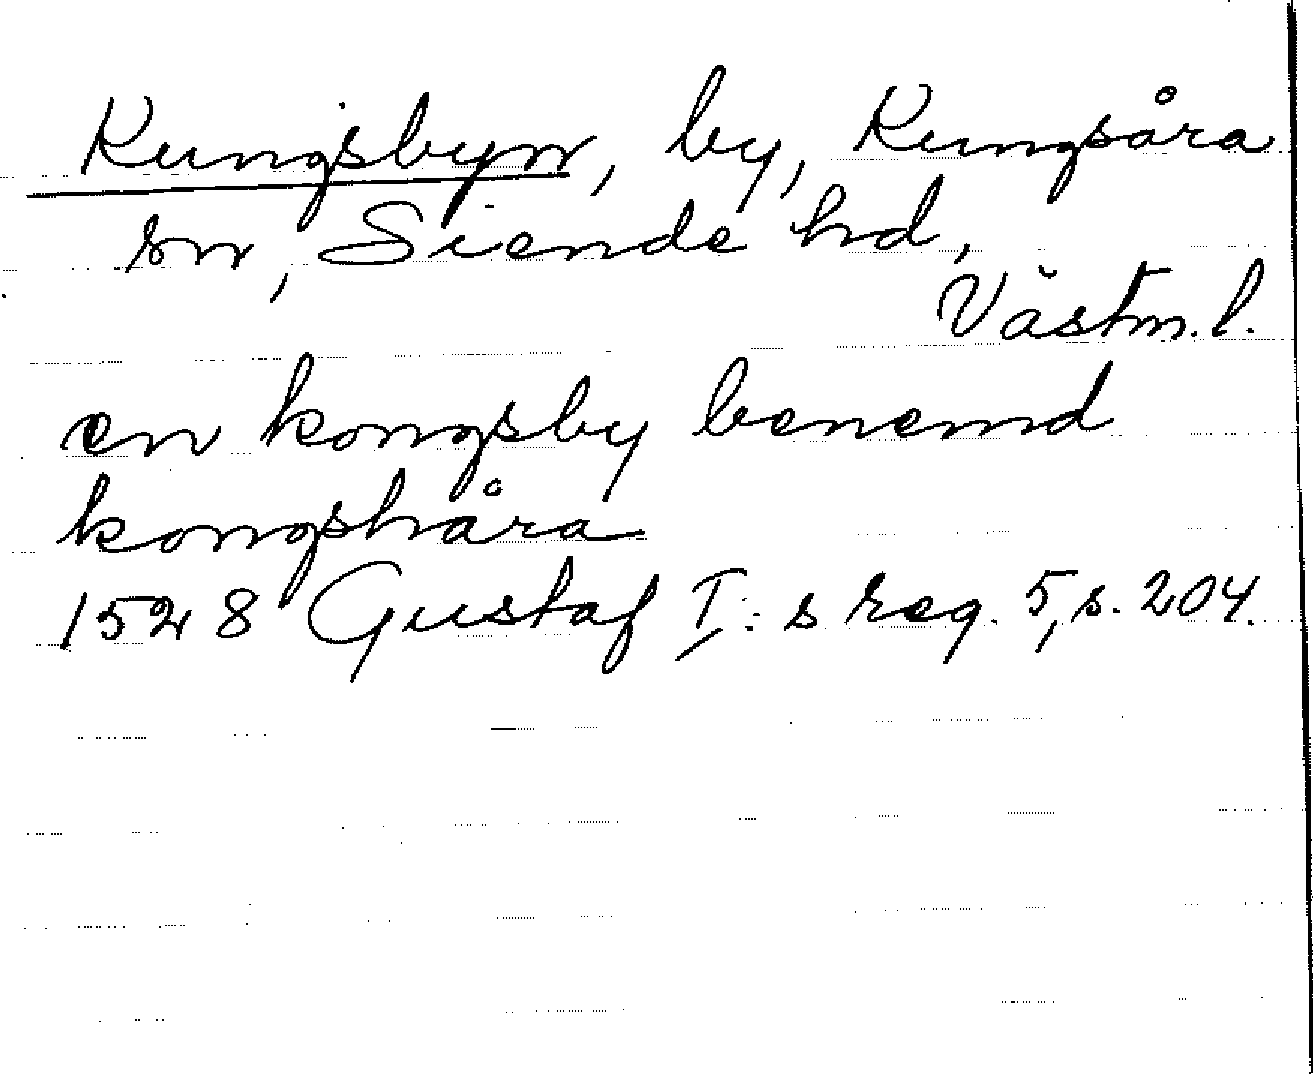 Kungsbyn, by, Kungsåra
sn, Siende hd,
Västm. l.
en kongsby benemd
kongshåra
1528 Gustaf I:s reg. 5, s. 204.